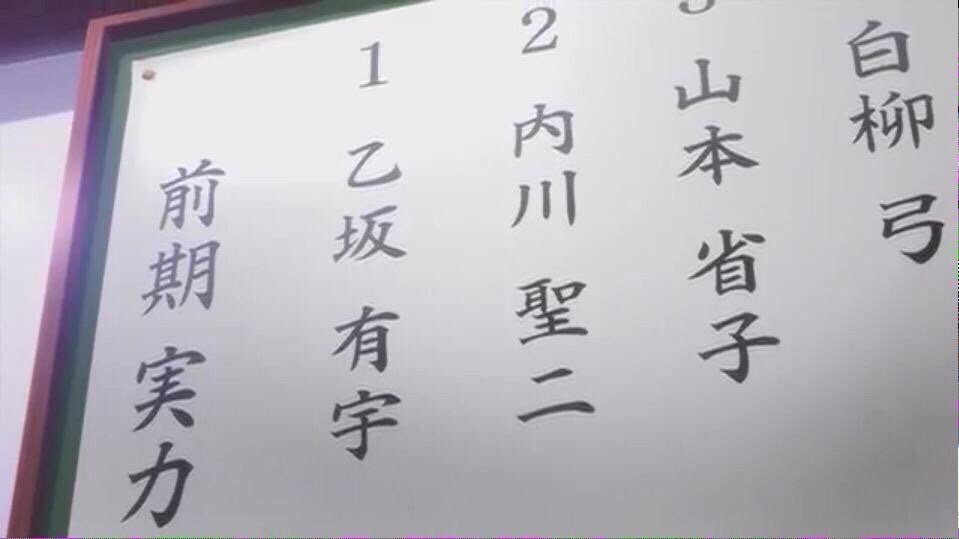 前期 実力
1 乙坂 有宇
2 内川 聖二
3 山本 省子
白柳 弓